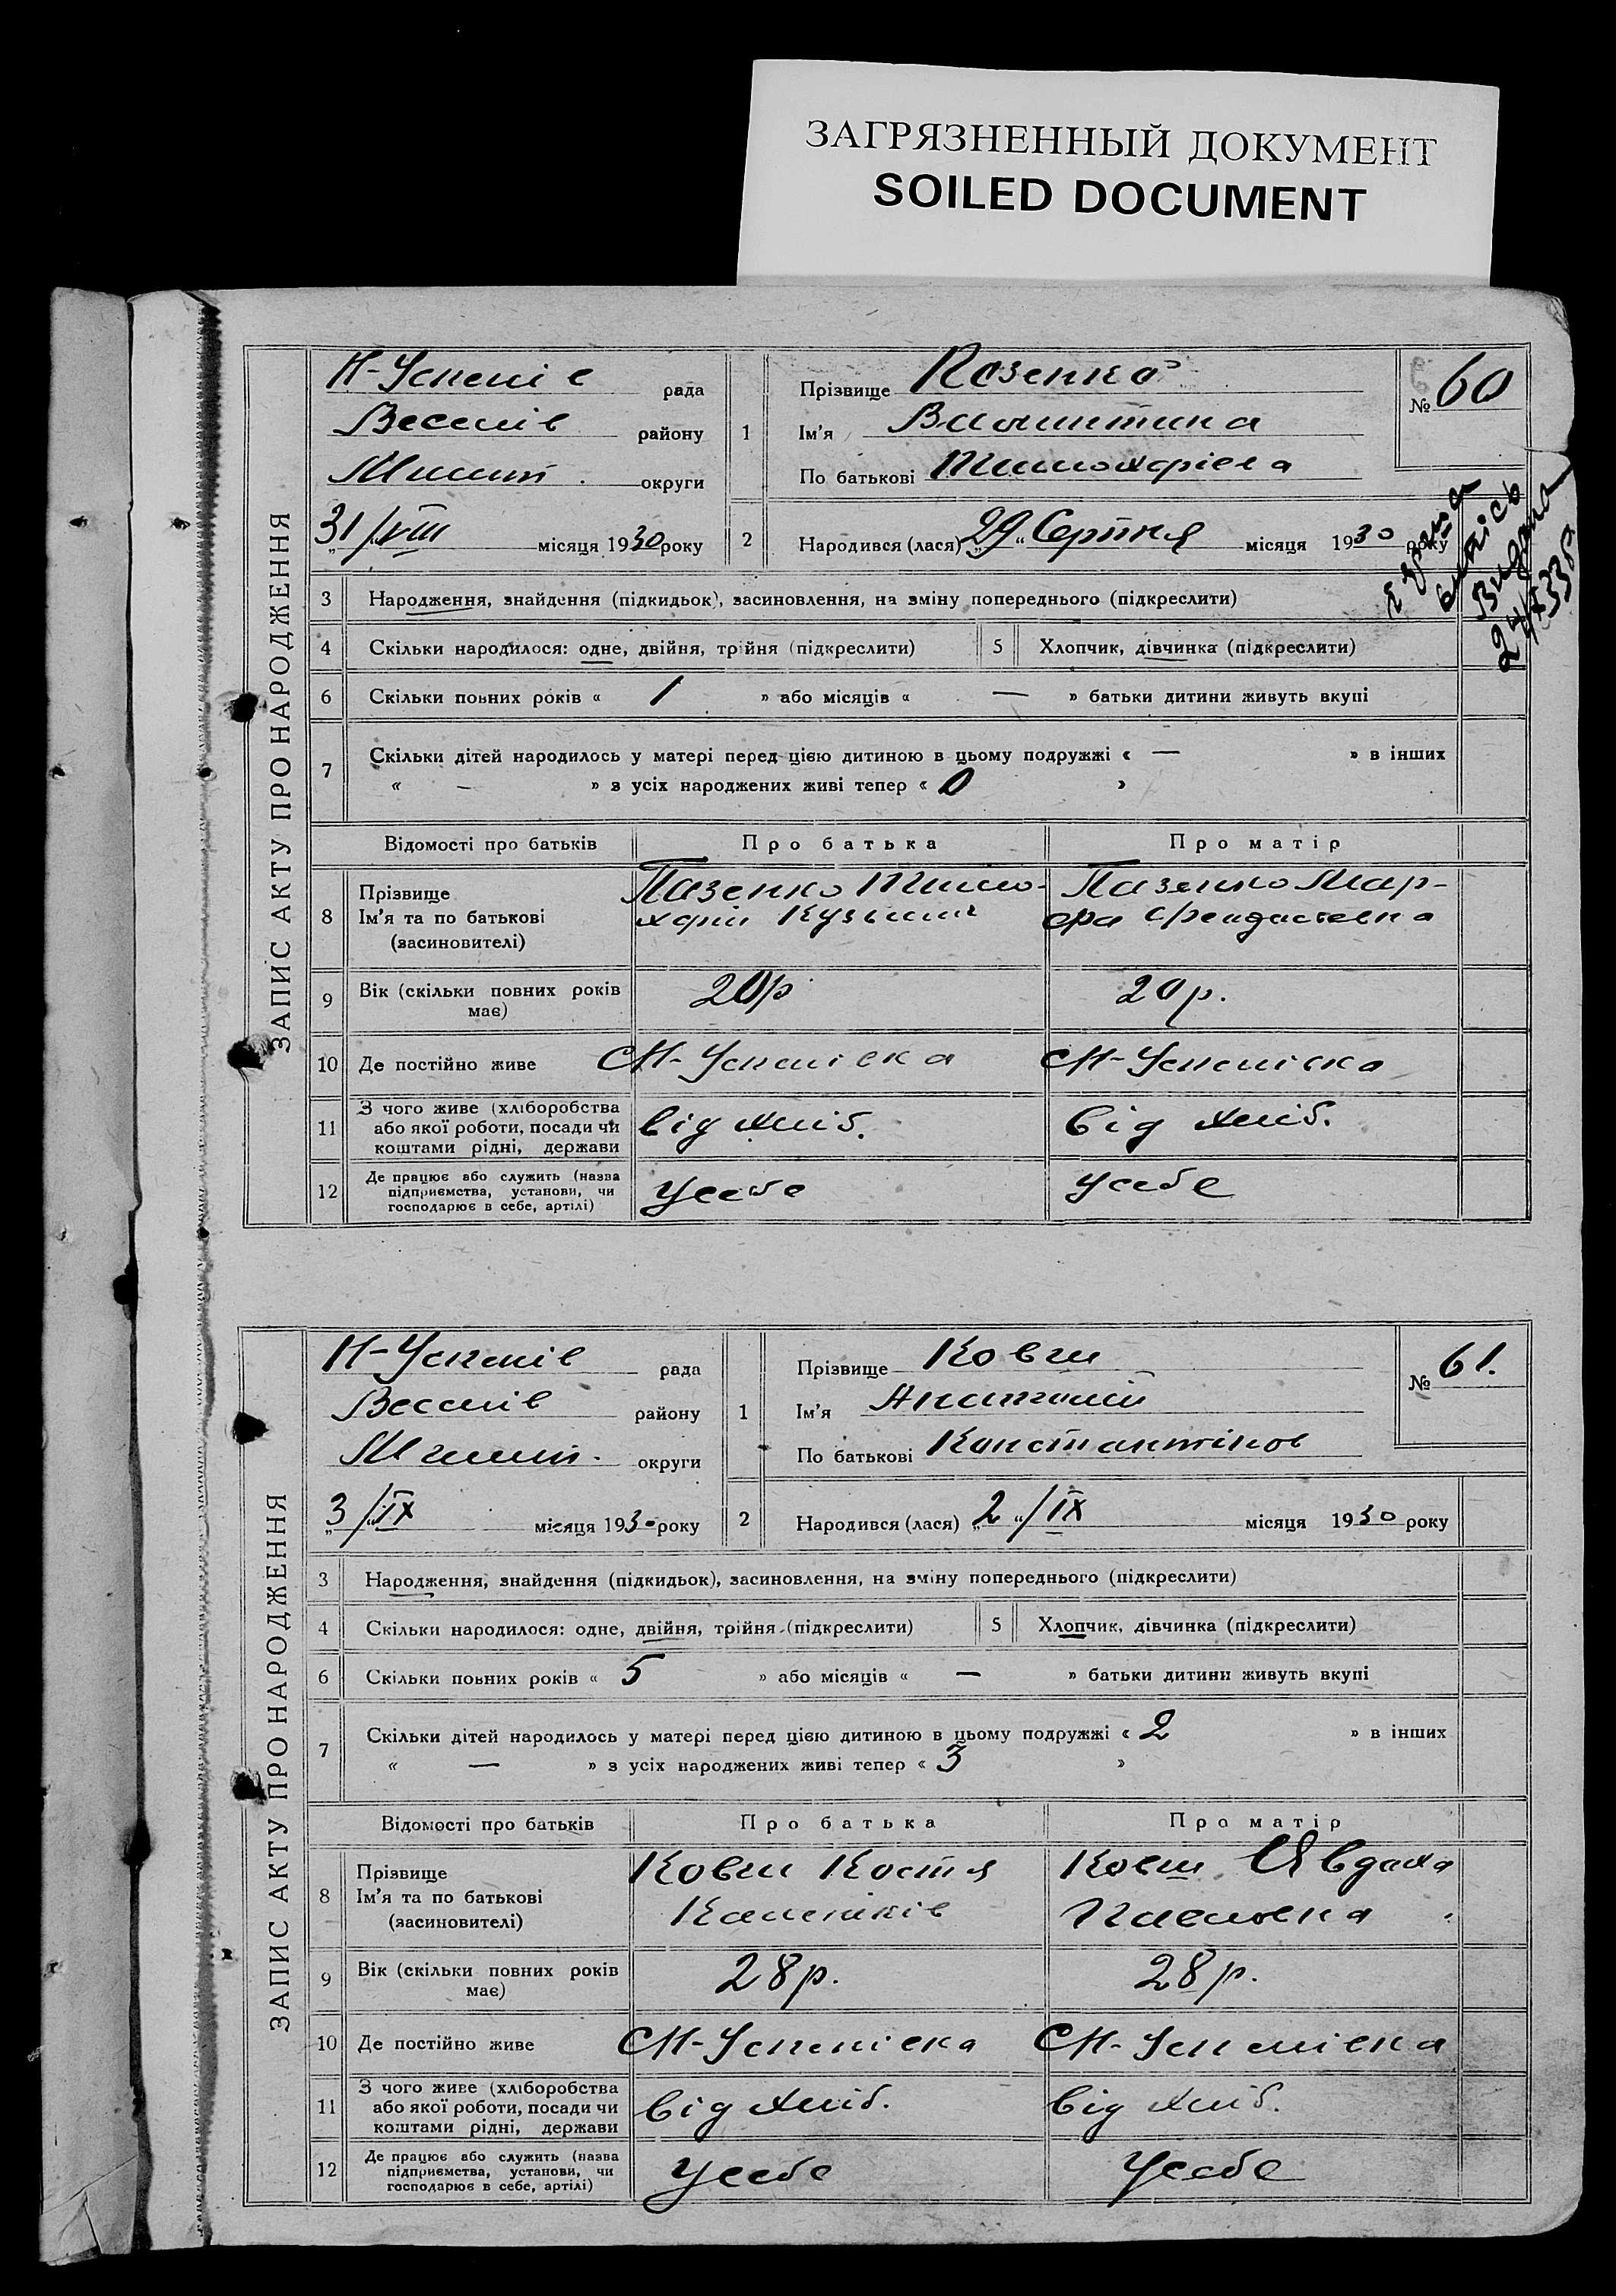 ЗАГРЯЗНЕННЫЙ ДОКУМЕНТ
SOILED DOCUMENT
ЗАПИС АКТУ ПРО НАРОДЖЕННЯ
Н-Успенів рада
Веселів району
округи
31/VIII місяця 1930 року
1
Прізвище Пазенко
Ім'я Валинтина
По батькові Тимохфіївна
№ 60
2
Народився (лася) „29“ Серпня місяця 1930 року
виписъ
Видана
3 Народження, знайдення (підкидьок), засиновлення, на зміну попереднього (підкреслити)
4 Скільки народилося: одне, двійня, трійня (підкреслити) 5 Хлопчик, дівчинка (підкреслити)
6 Скільки повних років « 1 » або місяців « — » батьки дитини живуть вкупі
7 Скільки дітей народилось у матері перед цією дитиною в цьому подружжі « — » в інших
« — » з усіх народжених живі тепер « 0 »
Відомості про батьків Про батька Про матір
8 Прізвище
Ім'я та по батькові
(засновителі)
Пазенко Тимо-
хфій Кузьмич
Пазенко Мар-
фа
9 Вік (скільки повних років має) 20р 20р.
10 Де постійно живе СН-Успенівка СН-Успенівка
11 З чого живе (хліборобства
або якої роботи, посади чи
коштами рідні, держави
від хліб. від хліб.
12 Де працює або служить (назва
підприємства, установи, чи
господарює в себе, артілі)
Усебе Усебе
ЗАПИС АКТУ ПРО НАРОДЖЕННЯ
Н-Успенів рада
Веселів району
округи
3/IX місяця 1930 року
1
Прізвище Ковш
Ім'я Анатолій
По батькові Константінов
№ 61.
2
Народився (лася) „2“/IX місяця 1930 року
3 Народження, знайдення (підкидьок), засиновлення, на зміну попереднього (підкреслити)
4 Скільки народилося: одне, двійня, трійня (підкреслити) 5 Хлопчик, дівчинка (підкреслити)
6 Скільки повних років « 5 » або місяців « — » батьки дитини живуть вкупі
7 Скільки дітей народилось у матері перед цією дитиною в цьому подружжі « 2 » в інших
« — » з усіх народжених живі тепер « 3 »
Відомості про батьків Про батька Про матір
8 Прізвище
Ім'я та по батькові
(засиновителі)
Ковш Костя
Ковш Явдоха
Павловна
9 Вік (скільки повних років має) 28р. 28р.
10 Де постійно живе СН-Успенівка СН-Успенівка
11 З чого живе (хліборобства
або якої роботи, посади чи
коштами рідні, держави
від хліб. від хліб.
12 Де працює або служить (назва
підприємства, установи, чи
господарює в себе, артілі)
Усебе Усебе